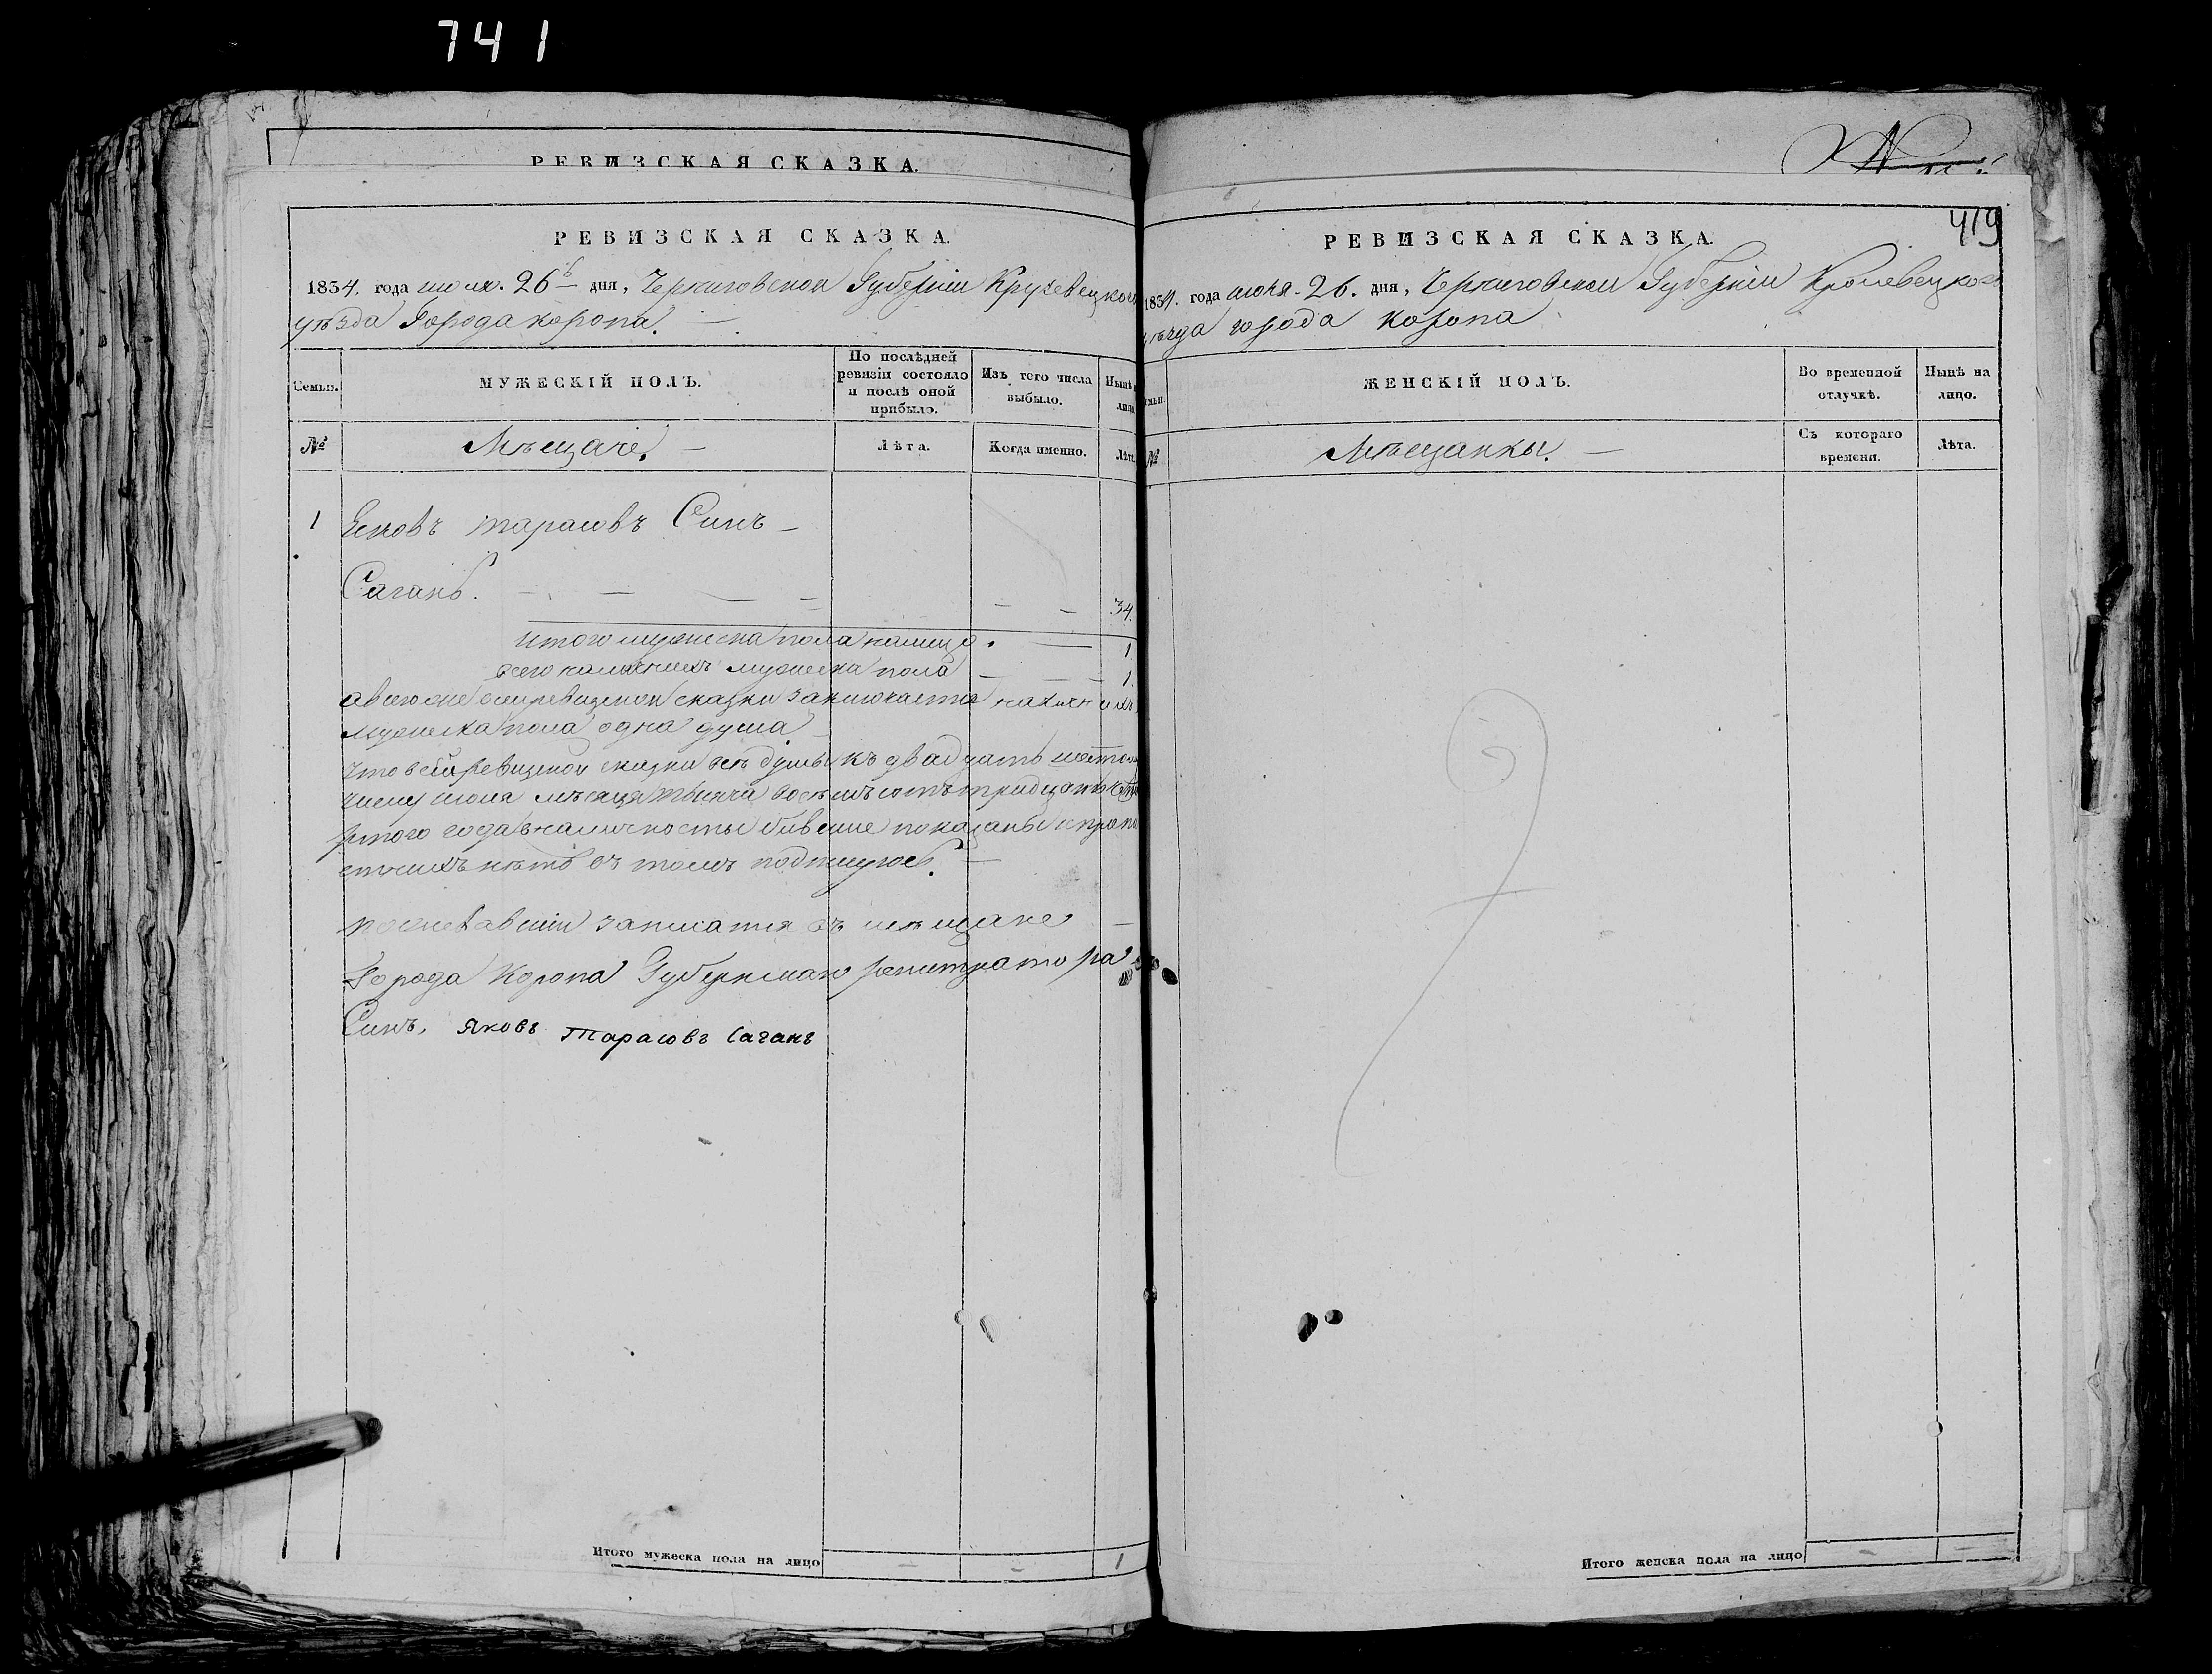 741
РЕВИЗСКАЯ СКАЗКА.
РЕВИЗСКАЯ СКАЗКА.
1834. года июня. 26 дня, Черниговской Губерніи Крулевецкого
уѣзда Города коропа. —
Семьи.
МУЖЕСКІЙ ПОЛЪ.
По послѣдней ревизіи состояло и послѣ оной прибыло.
Изъ того числа выбыло.
Нынѣ на лицо.
№
Мѣщане. —
Лѣта.
Когда именно.
Лѣта.
1
Яковъ тарасовъ Синъ —
Сагань. — — — — — — 34.
итого мужеска пола налицо. — 1
всего наличнихъ мужеска пола — — — 1.
авсего сей ревизской сказки заключается наличнихъ
мужеска пола одна душа
что всей ревизской сказки всѣ души къ двадцать шестому
числу июня мѣсяця тысячи восемъ сотъ тридцать четве
ртого года вналичносты бившие показаны и
нѣтъ въ томъ подпишуюсь. —
записатся въ мѣщане —
Города Коропа Губернскаго регистратора
Синъ, Яковъ Тарасовъ Саганъ
Итого мужеска пола на лицо — — 1
419
РЕВИЗСКАЯ СКАЗКА.
1834. года июня. 26. дня, Черниговской Губерніи Кролевецкого
уѣзда города коропа
Семьи.
ЖЕНСКІЙ ПОЛЪ.
Во временной отлучкѣ.
Нынѣ на лицо.
№
Мѣщанкы. —
Съ котораго времени.
Лѣта.
Итого женска пола на лицо — —